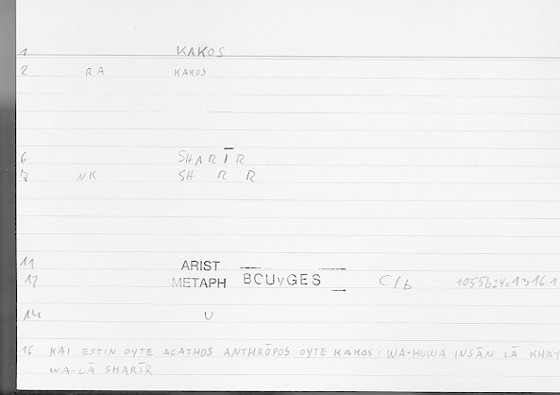 1 KAKOS
2 RA KAKOS
6 SHARĪR
7 NK SH R R
11 ARIST
12 METAPH BOUYGES C/b 1055b24:1316.1
14 U
16 KAI ESTIN OYTE AGATHOS ANTHRŌPOS OYTE KAKOS: WA-HUWA INSĀN LĀ KHAY
WA-LĀ SHARĪR